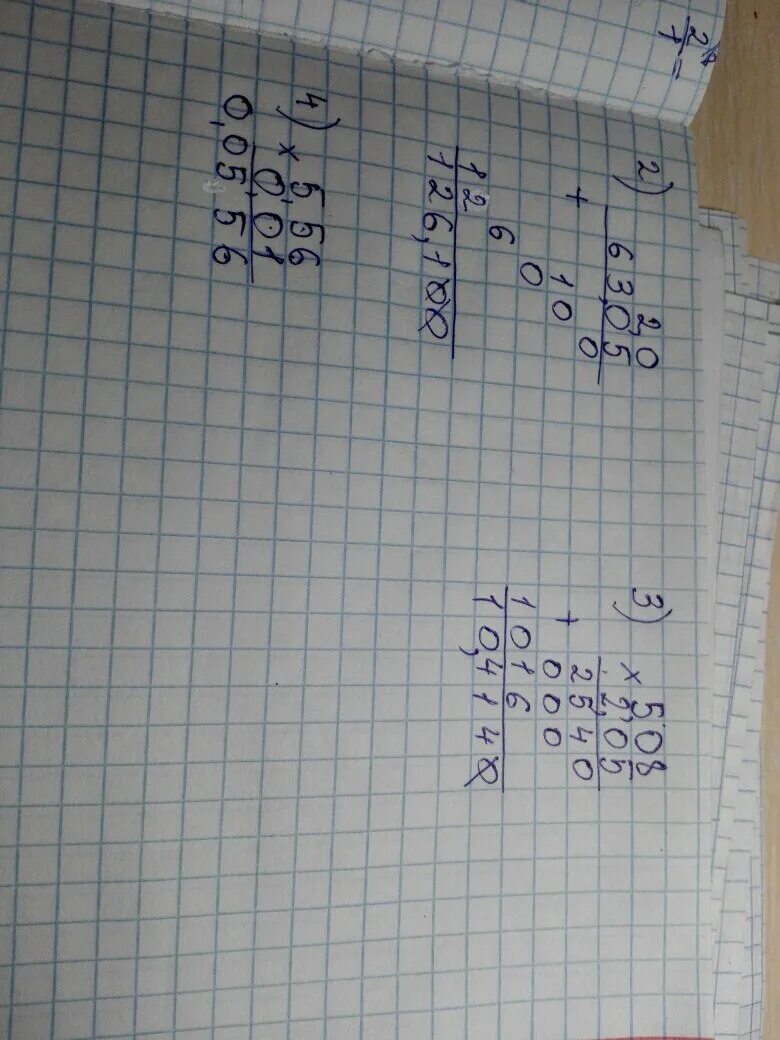 2) 2,0
63,05
0
+ 10
0
6
12
126,100
3) × 5,08
2,05
2540
+ 000
1016
10,4140
4) × 5,56
0,01
0,0556